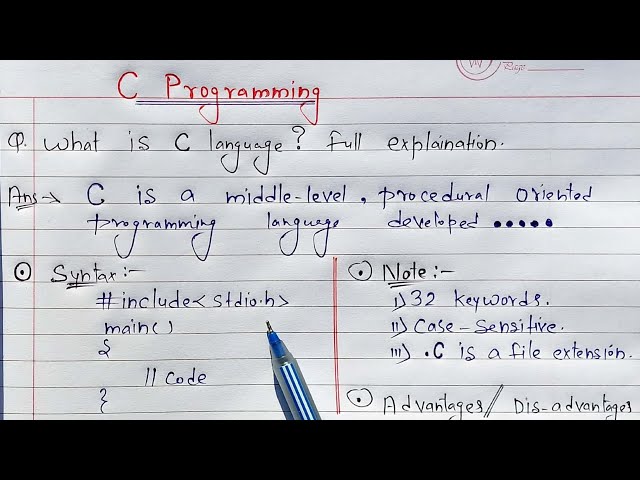 Page
C Programming
Q. What is C language? Full explaination.
Ans→ C is a middle-level, procedural oriented
programming language developed •••••
⊙ Syntax:-
#include<stdio.h>
main()
{
// Code
}
⊙ Note:-
i) 32 keywords.
ii) Case-Sensitive.
iii) .C is a file extension.
⊙ Advantages // Dis-advantages